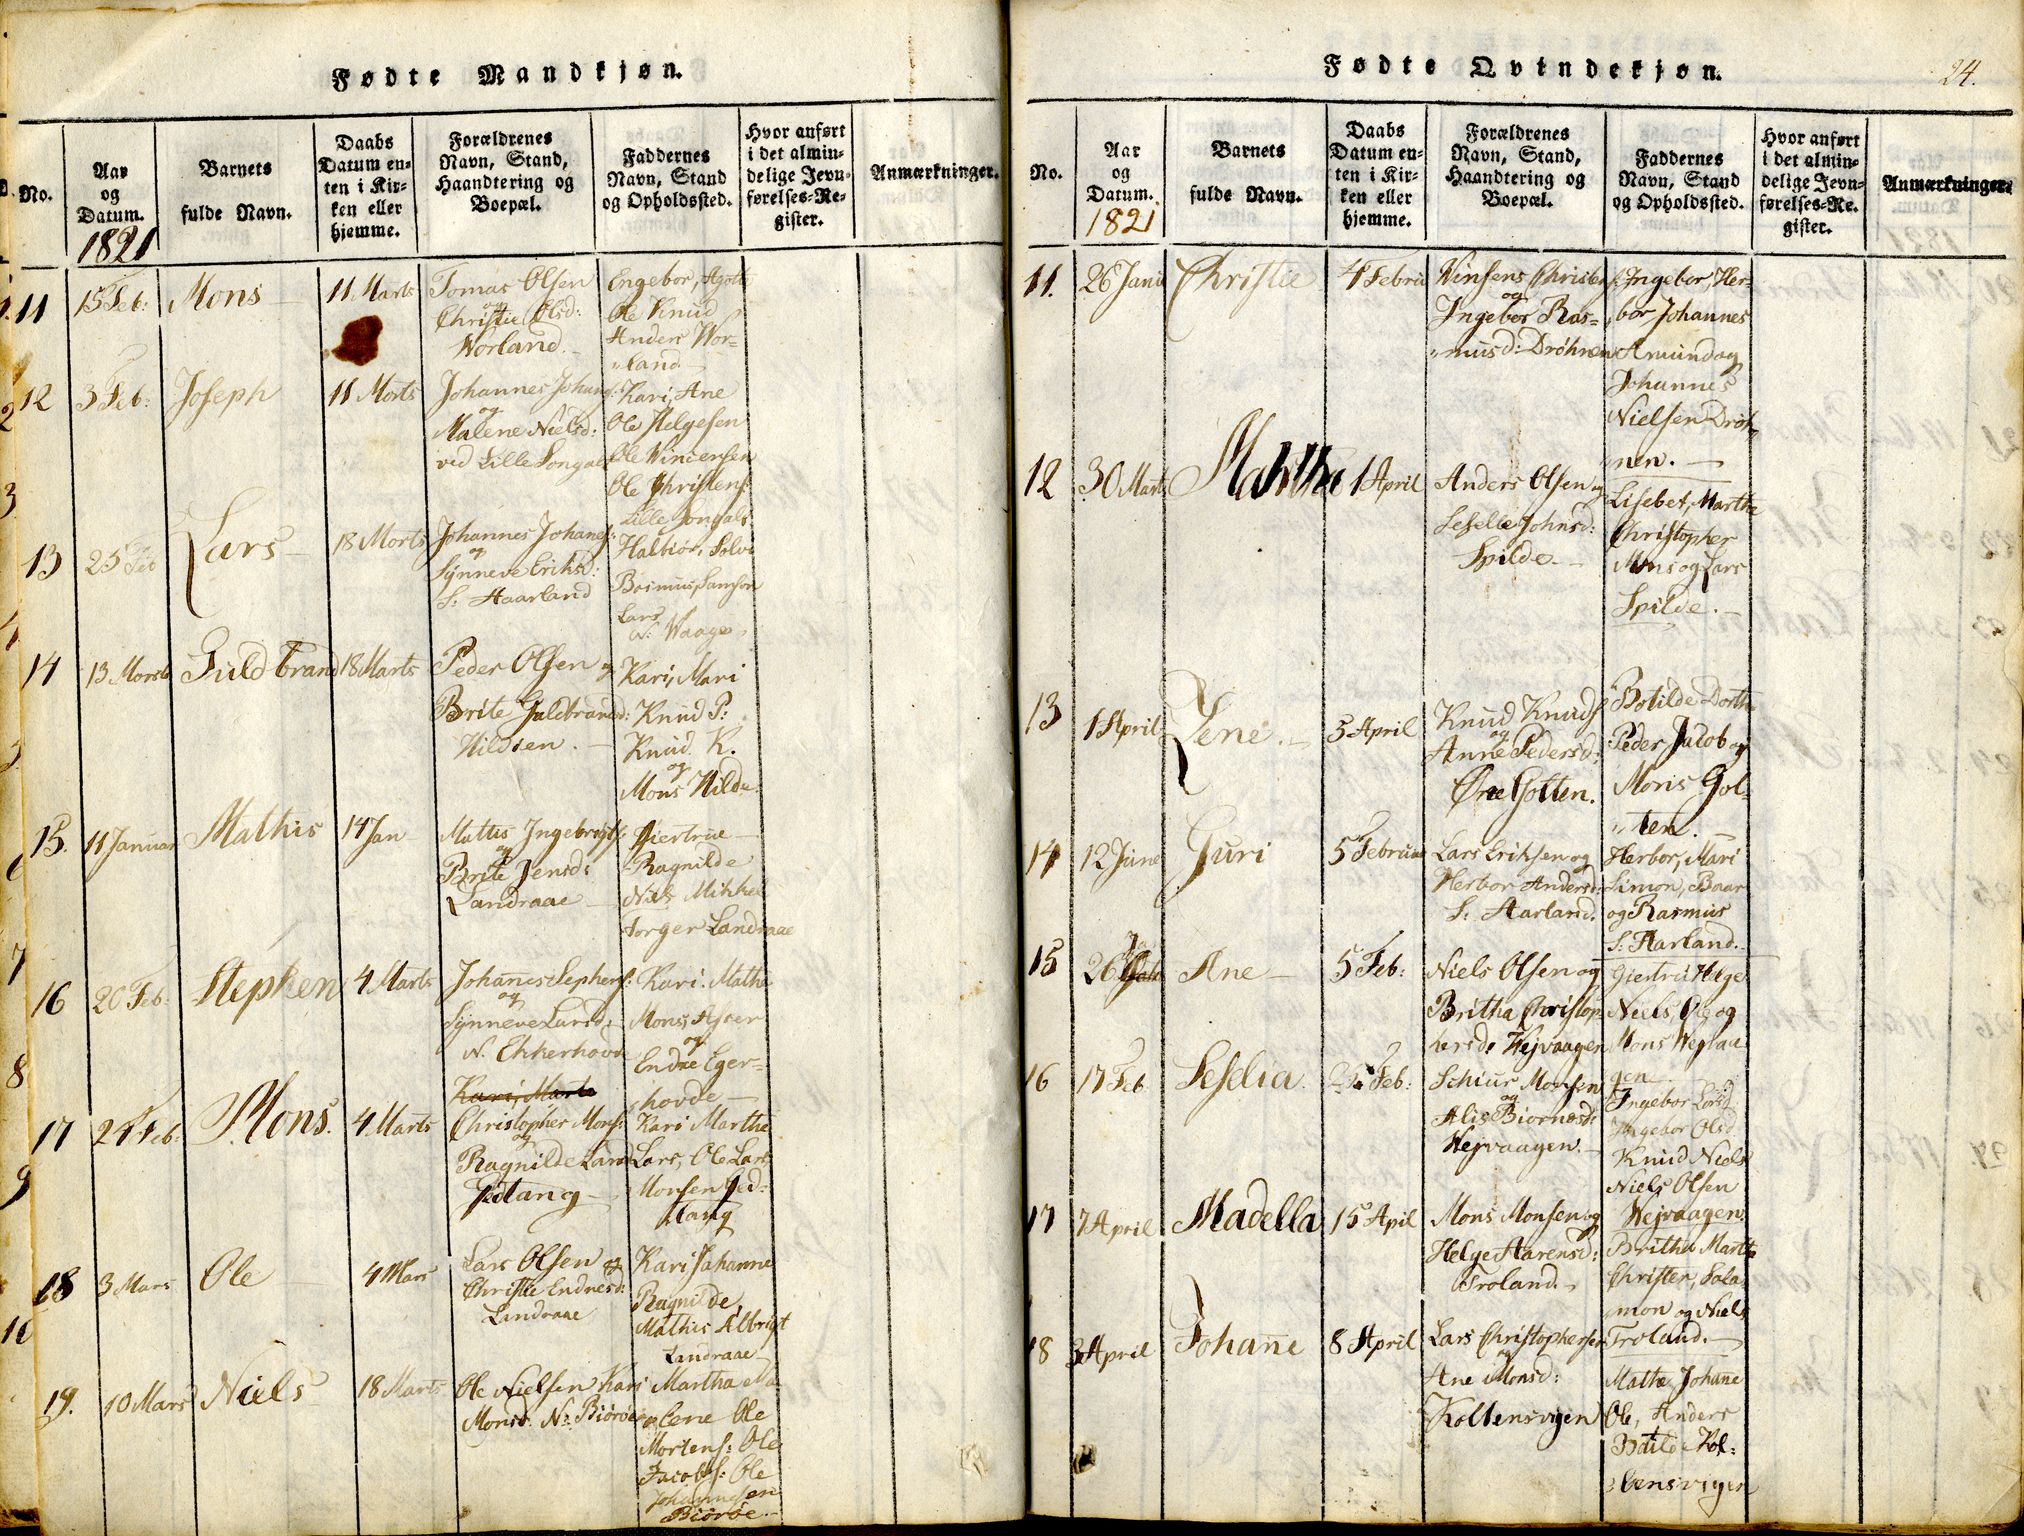 Fødte Mandkjøn.
No.
Aar
og
Datum.
1821
Barnets
fulde Navn.
Daabs
Datum en-
ten i Kir-
ken eller
hjemme.
Forældrenes
Navn, Stand,
Haandtering og
Boepæl.
Faddernes
Navn, Stand
og Opholdssted.
Hvor anført
i det almin-
delige Jevn-
førelses-Re-
gister.
Anmærkninger.
11
15 Feb:
Mons
11 Marts
Tomas Olsen
og
Christie Olsd:
Worland.
Engebor, Agote
Ole Knud
Anders Wor-
land.
12
3 Feb:
Joseph
11 Marts
Johannes Johans:
og
Malene Nielsd:
ved Lille Songal
Kari, Ane
Ole Helgesen
Ole Wincensen
Ole Christens:
Lille Songals.
13
25 Feb
Lars
18 Marts
Johannes Johanes:
og
Synneve Eriksd:
S: Haarland
Halbior, Solvi
Rasmus, Samson
Lars
N: Waage
14
13 Marts
Guldbrand
18 Marts
Peder Olsen og
Brite Guldbrandsd:
Hildsen.
Kari, Mari
Knud P:
Knud K.
og
Mons Hilde.
15.
11 Januar
Mathis
14 Jan
Mattis Ingebrigts:
og
Brite Jensd:
Landraae
Giertrue
Ragnilde
Niels Mikkel
Torger Landraae
16
20 Feb:
Stephen
4 Marts
Johanes Stephens:
og
Synneve Larsd:
N. Ekkerhovde
Kari. Matha
Mons, Asser
og
Endre Eger-
hovde
17
24 Feb:
Mons.
4 Marts
Kari, Marte
Christopher Mons:
og
Ragnilde Larsd
Jedtang
Kari Martha
Lars, Ole Lars
Monsen Jed-
tang
18
3 Mars
Ole
4 Mars
Lars Olsen og
Christie Endresd:
Landraae
Kari Johanne
Ragnilde,
Mathis Albrigt
Landraae
19.
10 Mars
Niels
18 Marts
Ole Nielsen Kari
Monsd. N: Biørøe
Martha Ma-
lene Ole
Mortens: Ole
Jacobs: Ole
Johannesen
Biørøe.
Fødte Qvindekjøn.
24.
No.
Aar
og
Datum.
1821
Barnets
fulde Navn.
Daabs
Datum en-
ten i Kir-
ken eller
hjemme.
Forældrenes
Navn, Stand,
Haandtering og
Boepæl.
Faddernes
Navn, Stand
og Opholdssted.
Hvor anført
i det almin-
delige Jevn-
førelses-Re-
gister.
Anmærkninger.
11.
26 Janu
Christie
4 Febru
Winsens Christens:
og
Ingebor Ras-
musd: Drøhnen
Ingebor, Her-
bor, Johannes
Amund og
Johannes
Nielsen Drøh-
nen.
12
30 Marts
Martha
1 April
Anders Olsen og
Seselle Johnsd:
Spilde.
Lisebet, Martha
Christopher
Mons og Lars
Spilde.
13
1 April
Lene.
5 April
Knud Knuds
og
Anne Pedersd:
Øne Gotten.
Botilde Dorthe
Peder Jacob og
Mons Gol-
ten.
14
12 June
Guri
5 Februar
Lars Eriksen og
Herbor Andersd:
S: Aarland.
Herbor, Mari
Simon, Baar
og Rasmus
S: Harland.
15
26 Ja
Ane
5 Feb:
Niels Olsen og
Britha Christop-
hersd: Wejvaagen
Giertru Helge
Niels, Ole og
Mons Wejvaa
gen
16
17 Feb
Seselia.
25 Feb:
Schiur Monsen
og
Alis Biornesd:
Wejvaagen.
Ingebor Larsd.
Ingebor Olsd
Knud Niels
Niels Olsen
Wejvaagen.
17
7 April
Madella
15 Apil
Mons Monsen og
Helge Aarensd:
Troland.
Britha Martha
Christen, Sala
mon og Niels
Troland.
18
3 April
Johane
8 April
Lars Christophersen
og
Ane Monsd:
Koltensvigen
Mathe Johane
Ole, Anders
Batile Kol-
tensvigen